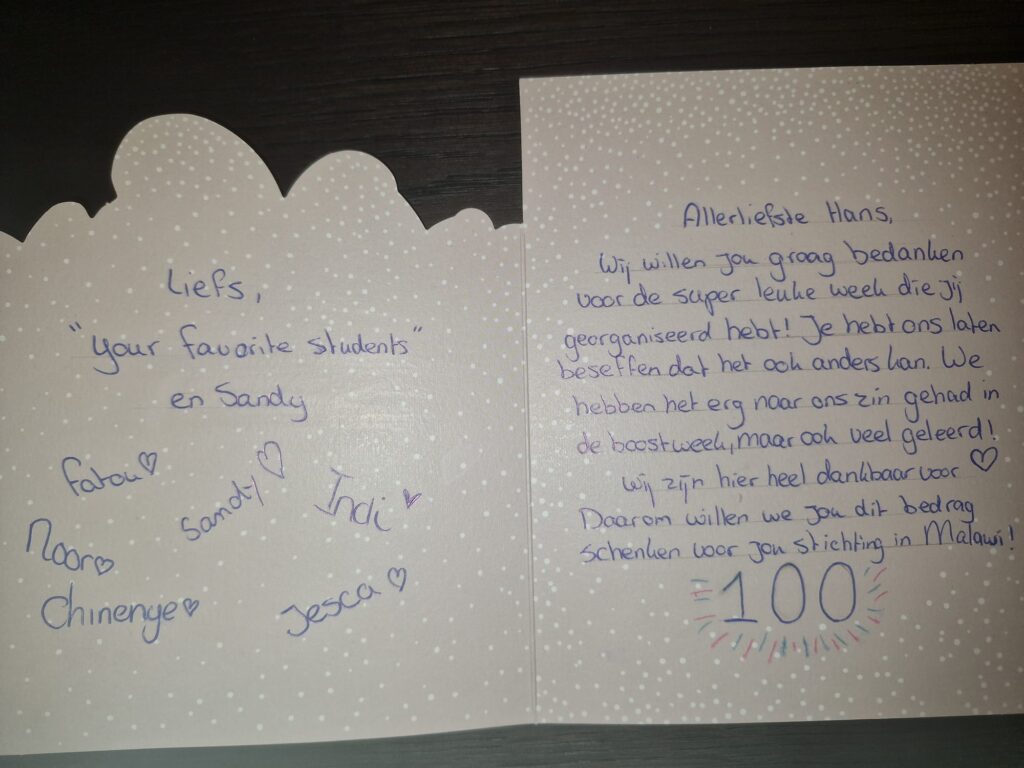 Allerliefste Hans,
Wij willen jou graag bedanken
voor de super leuke week die jij
georganiseerd hebt! Je hebt ons laten
beseffen dat het ook anders kan. We
hebben het erg naar ons zin gehad in
de boostweek, maar ook veel geleerd!
Wij zijn hier heel dankbaar voor ♡
Daarom willen we jou dit bedrag
schenken voor jou stichting in Malawi!
100
Liefs,
"Your favorite students"
en Sandy
Fatou ♡
Sandy ♡
Indi ♥
Noor ♡
Chinenye ♡
Jesca ♡